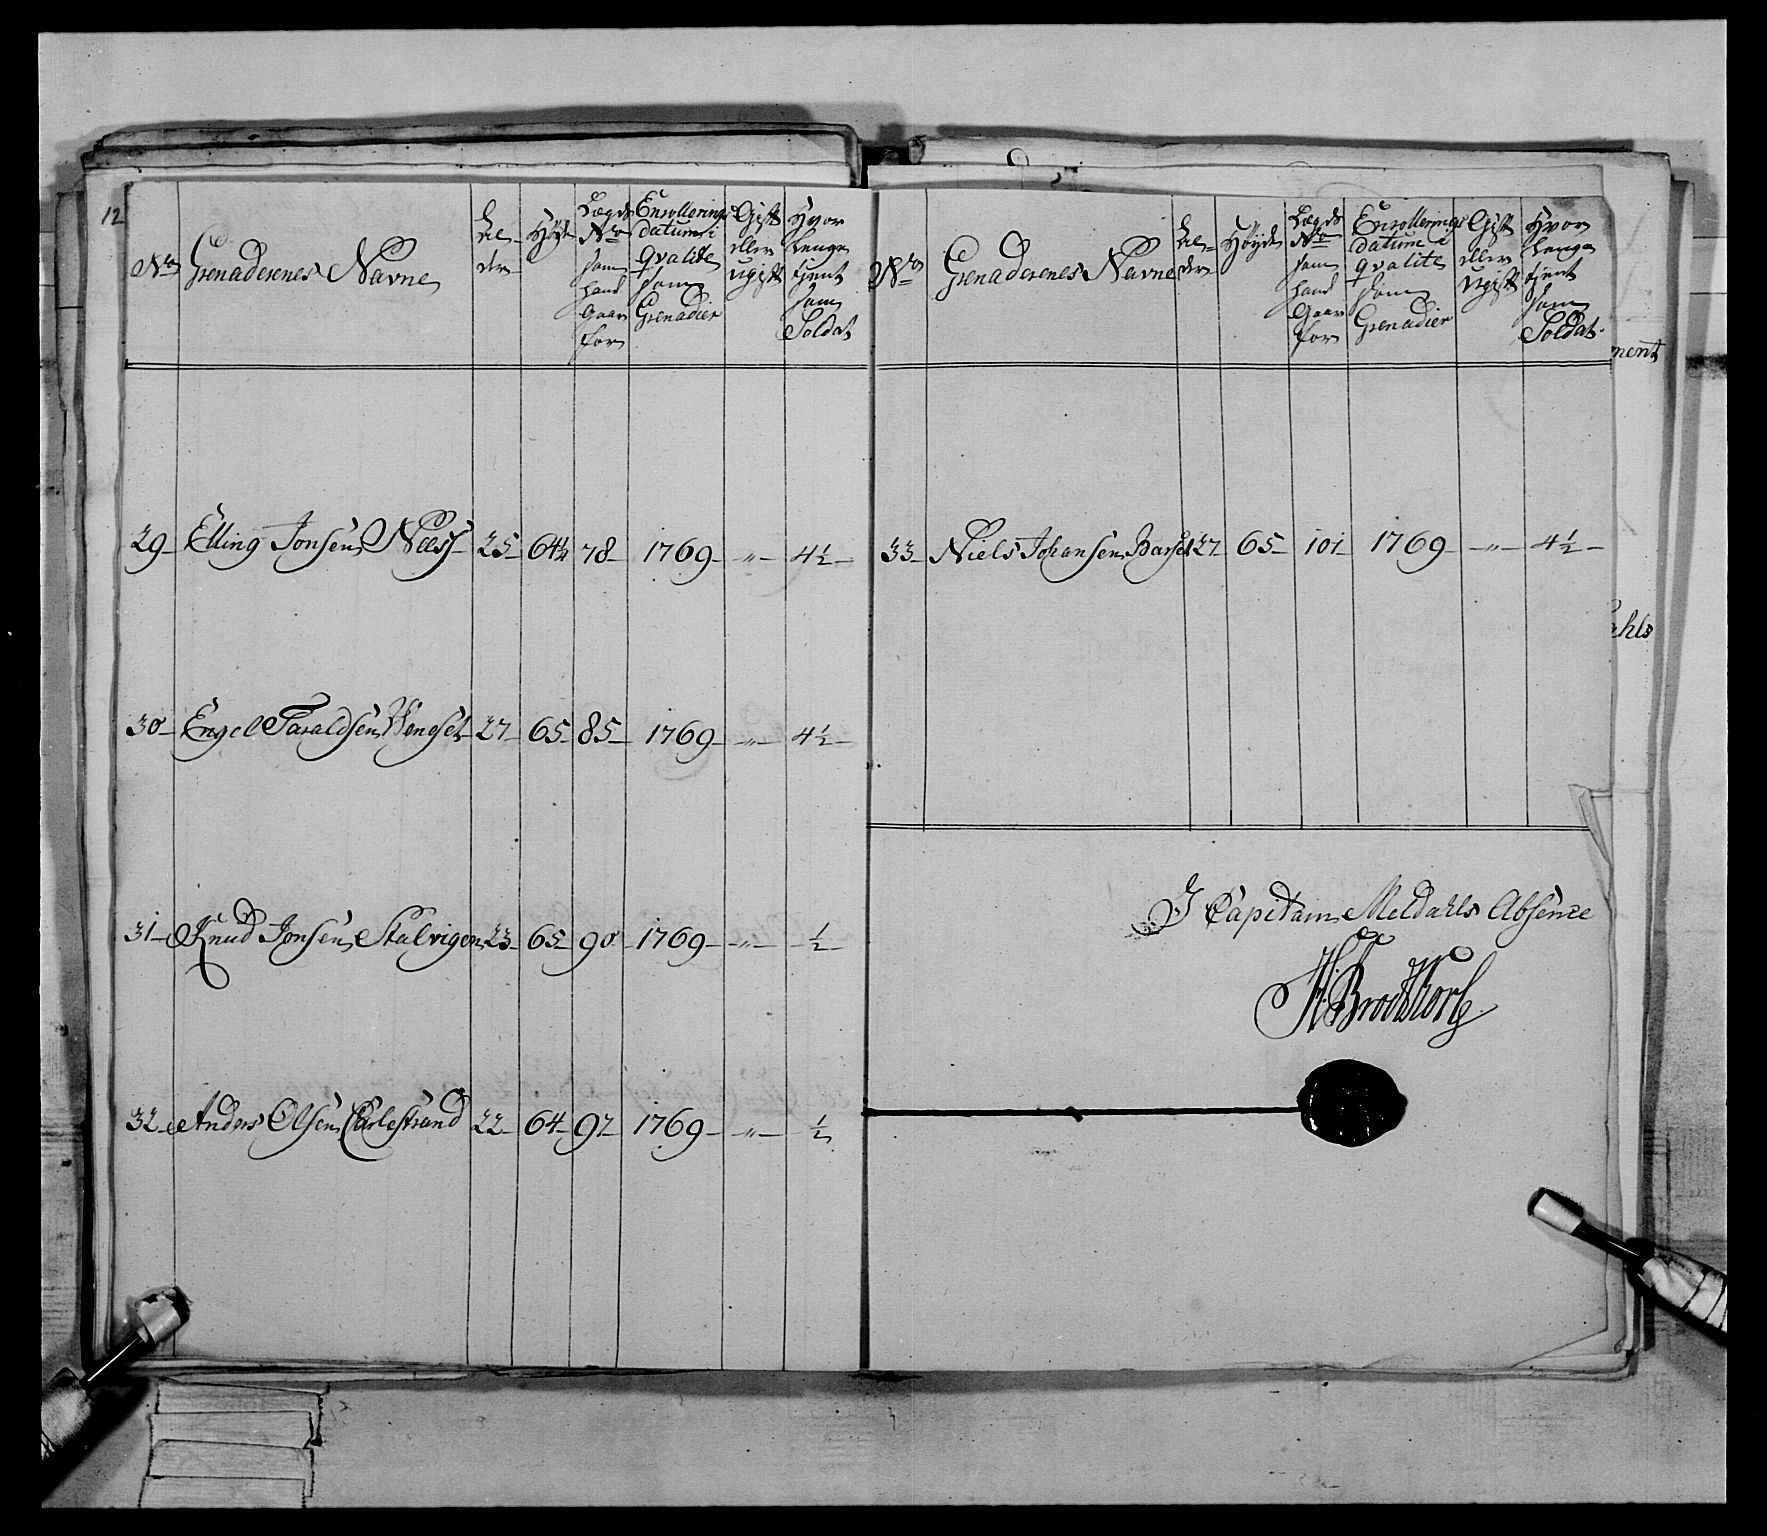 12
No Grenaderenes Navne Al- der Høyde Lægds No som hand Gaar for Enrollerings datum i qvalite som Grenadier Gift eller ugift Hvor lenge tient som Soldat
29 Elling Jonsen Neess 25 64½ 78 1769 " 4½
30 Engel Taraldsen Henset 27 65 85 1769 " 4½
31 Knud Jonsen Stalvigen 23 65 90 1769 " ½
32 Anders Olsen Carlestrand 22 64 97 1769 " ½
No Grenaderenes Navne Al- der Høyde Lægds No som hand Gaar for Enrollerings datum i qvalite som Grenadier Gift eller ugift Hvor lenge tient som Soldat
33 Niels Johansen Barset 27 65 101 1769 " 4½
I Capitain Meldahls Absence
H: Brockstorf
ment
ahls